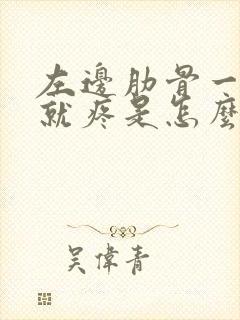 左邊肋骨一
就疼是怎麼
吳偉青